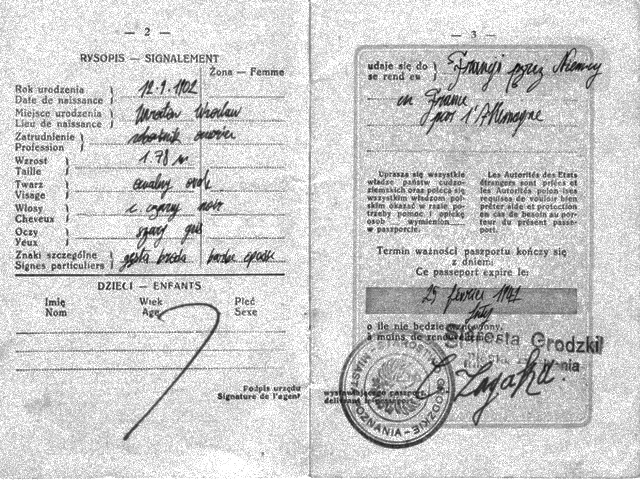 — 2 —
RYSOPIS — SIGNALEMENT
Żona — Femme
Rok urodzenia
Date de naissance
Miejsce urodzenia
Lieu de naissance
Wrocław
Zatrudnienie
Profession
Wzrost
Taille
1.78 m
Twarz
Visage
owalny
Włosy
Cheveux
c. czarny noir
Oczy
Yeux
szary gris
Znaki szczególne
Signes particuliers
gęsta broda
DZIECI — ENFANTS
Imię Wiek Płeć
Nom Age Sexe
Podpis urzędu
Signature de l'agent
— 3 —
udaje się do
se rend en
Francji przez Niemcy
en France
par l'Allemagne
Uprasza się wszystkie
władze państw cudzo-
ziemskich oraz poleca się
wszystkim władzom pol-
skim okazać w razie po-
trzeby pomoc i opiekę
osob wymienion
w paszporcie.
Les Autorités des Etats
étrangers sont priées et
les Autorités polonaises
requises de vouloir bien
prêter aide et protection
en cas de besoin au por-
teur du présent passe-
port.
Termin ważności paszportu kończy się
z dniem:
Ce passeport expire le:
25
o ile nie będzie
a moins de
Starosta Grodzki
MIASTA POZNANIA